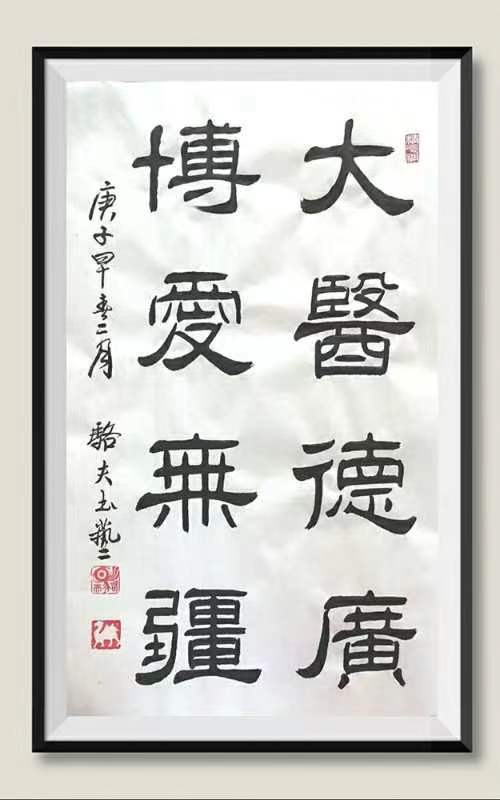 大醫德廣
博愛無疆
庚子早春二月 駱夫玉藝